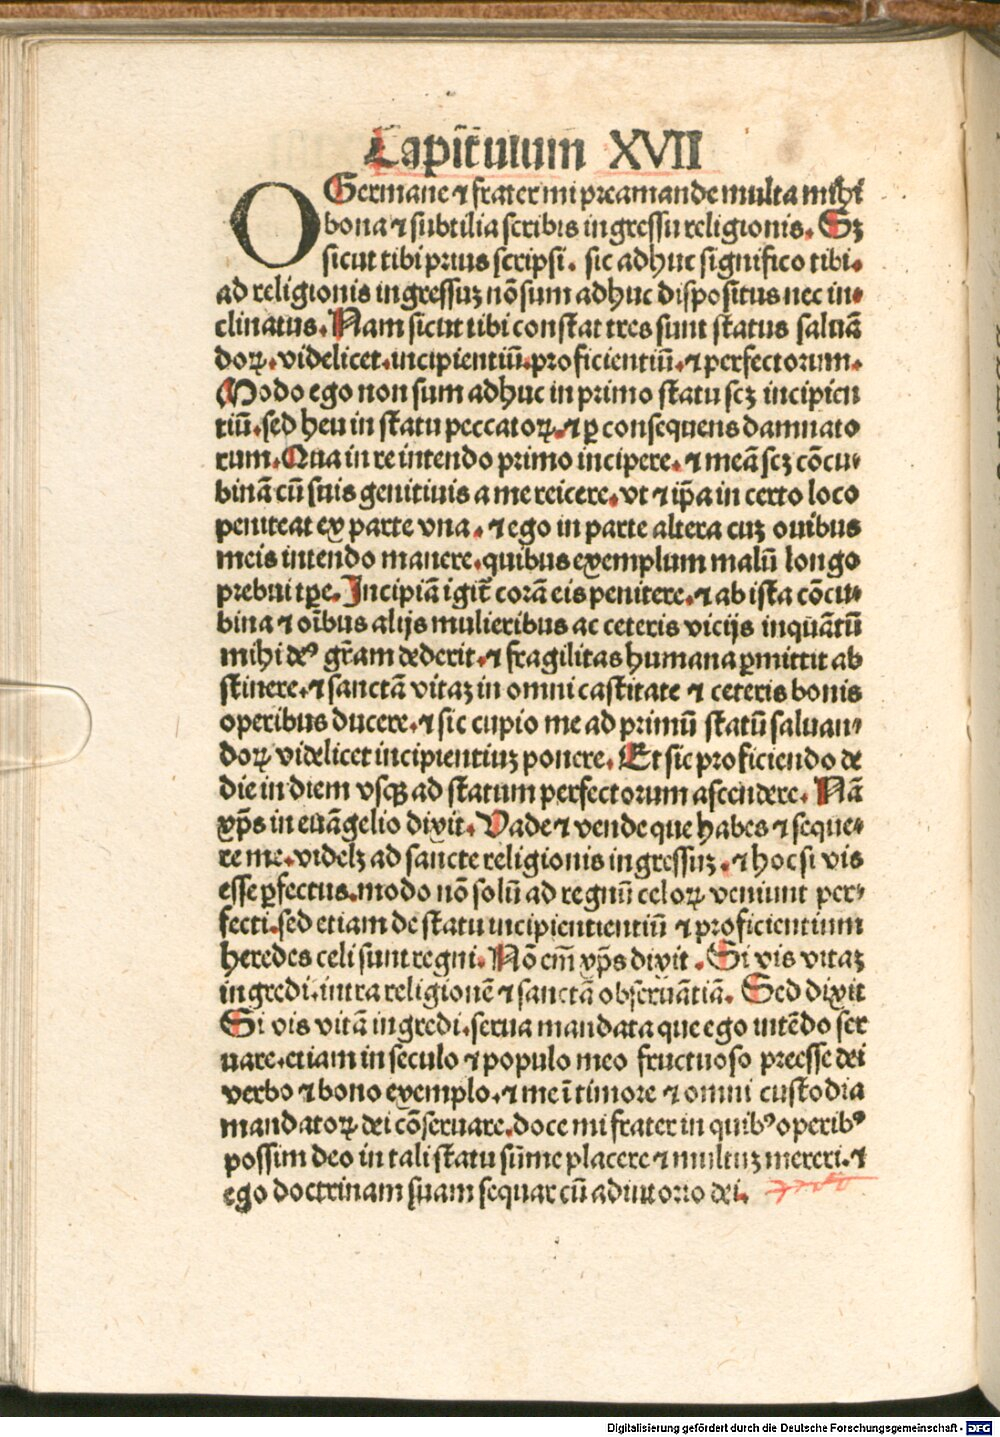 Capit̃ulum XVII
O Germane ⁊ frater mi preamande multa mihi
bona ⁊ subtilia scribis ingressu religionis. Sꝫ
sicut tibi prius scripsi. sic adhuc significo tibi.
ad religionis ingressuꝫ nõ sum adhuc dispositus nec in⸗
clinatus. Nam sicut tibi constat tres sunt status saluã
doꝝ. videlicet. incipientiũ. proficientiũ. ⁊ perfectorum.
Modo ego non sum adhuc in primo statu scꝫ incipien
tiũ. sed heu in statu peccatoꝝ. ⁊ ꝑ consequens damnato
rum. Qua in re intendo primo incipere. ⁊ meã scꝫ cõcu⸗
binã cũ suis genitiuis a me reicere. vt ⁊ ip̃a in certo loco
peniteat ex parte vna. ⁊ ego in parte altera cuꝫ ouibus
meis intendo manere. quibus exemplum malũ longo
prebui tꝑe. Incipiã igit̃ corã eis penitere. ⁊ ab ista cõcu⸗
bina ⁊ oĩbus alijs mulieribus ac ceteris vicijs inquãtũ
mihi deꝰ gr̃am dederit. ⁊ fragilitas humana ꝑmittit ab
stinere. ⁊ sanctã vitaꝫ in omni castitate ⁊ ceteris bonis
operibus ducere. ⁊ sic cupio me ad primũ statũ saluan⸗
doꝝ videlicet incipientiuꝫ ponere. Et sic proficiendo de
die in diem vsqꝫ ad statum perfectorum ascendere. Nã
xp̃s in euãgelio dixit. Vade ⁊ vende que habes ⁊ seque⸗
re me. videlꝫ ad sancte religionis ingressuꝫ. ⁊ hoc si vis
esse ꝑfectus. modo nõ solũ ad regnũ celoꝝ veniunt per⸗
fecti. sed etiam de statu incipientientiũ ⁊ proficientium
heredes celi sunt regni. Nõ em̃ xp̃s dixit. Si vis vitaꝫ
ingredi. intra religionẽ ⁊ sanctã obseruãtiã. Sed dixit
Si vis vitã ingredi. serua mandata que ego intẽdo ser
uare. etiam in seculo ⁊ populo meo fructuoso preesse dei
verbo ⁊ bono exemplo. ⁊ me ĩ timore ⁊ omni custodia
mandatoꝝ dei cõseruare. doce mi frater in quibꝰ operibꝰ
possim deo in tali statu sũme placere ⁊ multuꝫ mereri. ⁊
ego doctrinam suam sequar cũ adiutorio dei.
Digitalisierung gefördert durch die Deutsche Forschungsgemeinschaft - DFG